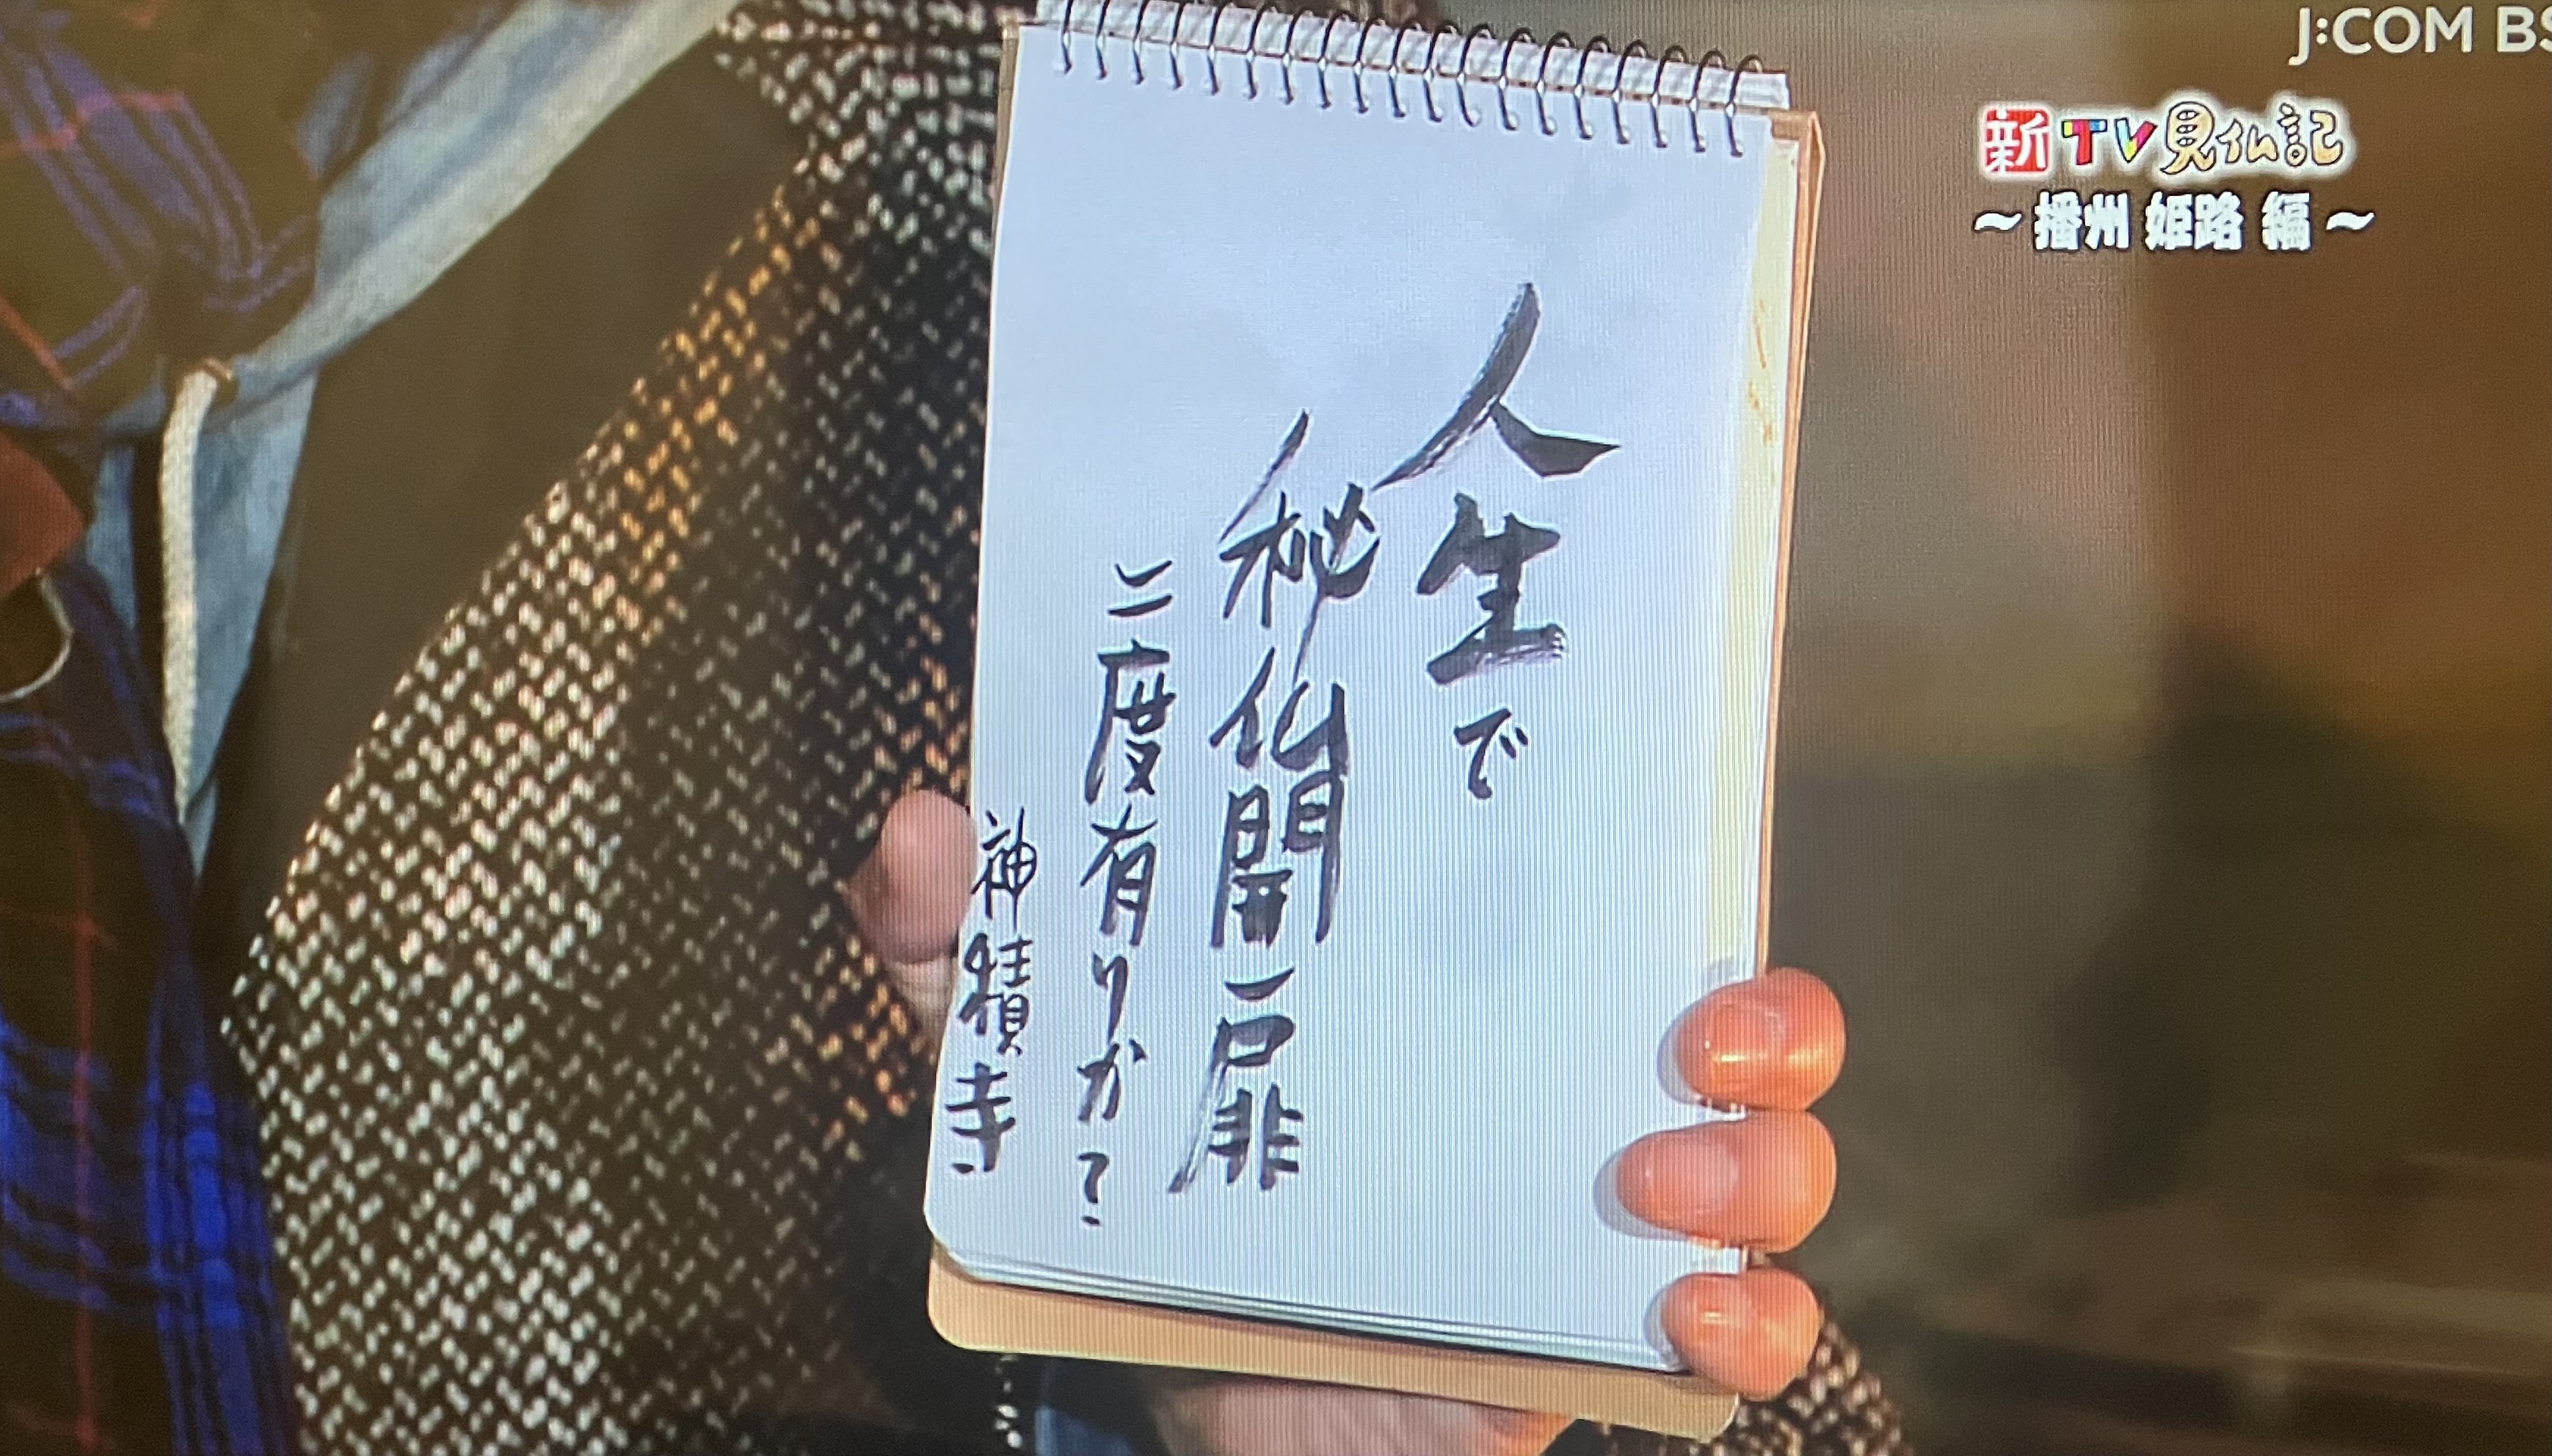 J:COM BS
新TV見仏記
～播州 姫路 編～
人生で
秘仏開扉
二度有りか?
神積寺